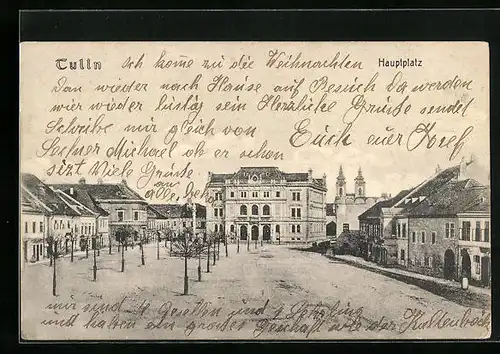 Tulln
Hauptplatz
Ich kome zu die Weihnachten
Dan wieder nach Hause auf Besuch Da werden
wür wieder lustig sein Herzliche Grüße sendet
Schreibe mir gleich von Euch euer Josef
Sechner Michael ob er schon
sizt Viele Grüße
an alle
mir sind 4 Gesellen und 2 Lehrling
und haben ein großes Geschäft wie der Kaltenböck